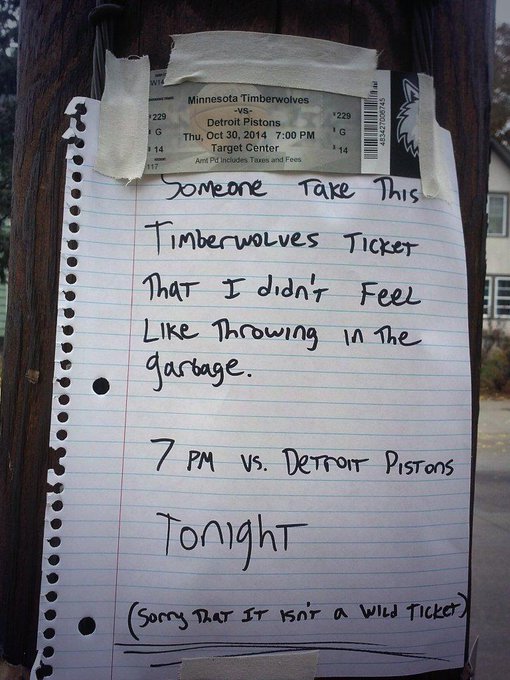 Minnesota Timberwolves
-vs-
Detroit Pistons
Thu, Oct 30, 2014 7:00 PM
Target Center
Amt Pd Includes Taxes and Fees
229
G
14
117
229
G
14
483427006745
Someone Take This
Timberwolves Ticket
That I didn't Feel
Like Throwing in The
garbage.
7 PM vs. Detroit Pistons
Tonight
(Sorry That IT isn't a Wild Ticket)